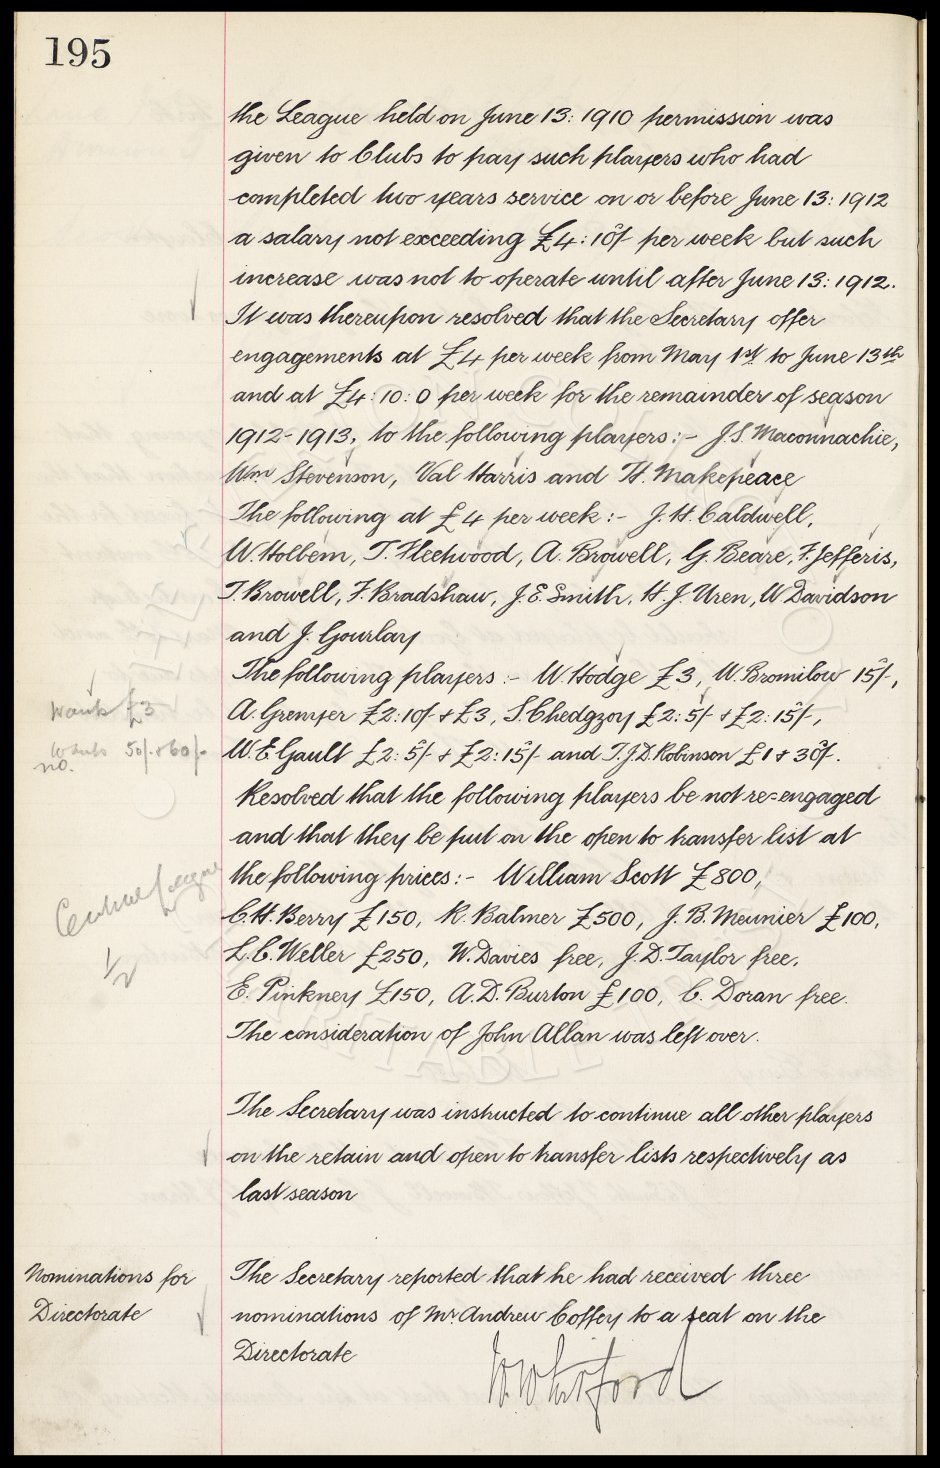 195
the League held on June 13: 1910 permission was
given to Clubs to pay such players who had
completed two years service on or before June 13: 1912
a salary not exceeding £4: 10/- per week but such
increase was not to operate until after June 13: 1912.
It was thereupon resolved that the Secretary offer
engagements at £4 per week from May 1st to June 13th
and at £4: 10: 0 per week for the remainder of season
1912-1913, to the following players:- J.S. Maconnachie,
Wm Stevenson, Val Harris and H. Makepeace
The following at £4 per week:- J.H. Caldwell,
W. Holbem, T. Fleetwood, A. Browell, G. Beare, F. Jefferis,
T. Browell, F. Bradshaw, J.E. Smith, H.J. Uren, W Davidson
and J. Gourlay
The following players:- W. Hodge £3, W. Bromilow 15/-,
wants £3
A. Grenyer £2: 10/- + £3, S. Chedgzoy £2: 5/- + £2: 15/-,
wants 50/- + 60/-
no.
W.E. Gault £2: 5/- + £2: 15/- and T.J.D. Robinson £1 + 30/-.
Resolved that the following players be not re=engaged
and that they be put on the open to transfer list at
the following prices:- William Scott £800,
Central League
C.H. Berry £150, R. Balmer £500, J.B. Meunier £100,
1/2
L.C. Weller £250, W. Davies free, J.D. Taylor free,
E. Pinkney £150, A.D. Burton £100, C. Doran free.
The consideration of John Allan was left over.
The Secretary was instructed to continue all other players
on the retain and open to transfer lists respectively as
last season
Nominations for
Directorate
The Secretary reported that he had received three
nominations of Mr. Andrew Coffey to a seat on the
Directorate
W. Whitford